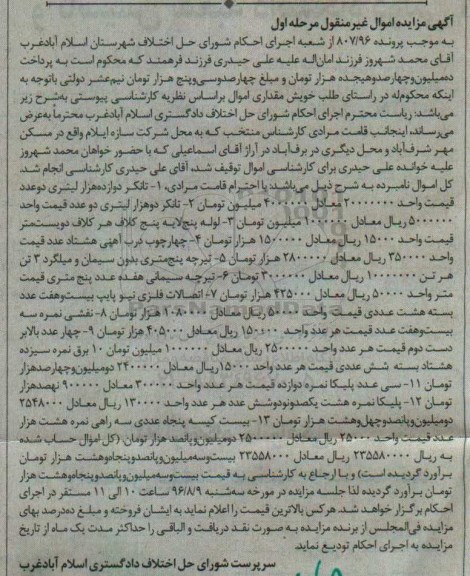 آگهی مزایده اموال غیر منقول مرحله اول
به موجب پرونده ۸۰۷/۹۶ از شعبه اجرای احکام شورای حل اختلاف شهرستان اسلام آبادغرب
آقای محمد شهروز فرزند امان‌اله علیه علی حیدری فرزند فرهمند که محکوم است به پرداخت
ده‌میلیون‌وچهارصدوهیجده هزار تومان و مبلغ چهارصدوسی‌وپنج هزار تومان نیم‌عشر دولتی باتوجه به
اینکه محکوم‌له در راستای طلب خویش مقداری اموال براساس نظریه کارشناسی پیوستی به‌شرح زیر
می‌باشد: ریاست محترم اجرای احکام شورای حل اختلاف دادگستری اسلام آبادغرب محترماً به‌عرض
می‌رساند، اینجانب قامت مرادی کارشناس منتخب که به محل شرکت سازه ایلام واقع در مسکن
مهر شرف‌آباد و محل دیگری در برف‌آباد در آراز آقای اسماعیلی که با حضور خواهان محمد شهروز
علیه خوانده علی حیدری برای کارشناسی اموال توقیف شده، آقای علی حیدری کارشناسی انجام شد.
کل اموال نامبرده به شرح ذیل می‌باشد: با احترام قامت مرادی، ۱- تانکر دوازده‌هزار لیتری دوعدد
قیمت واحد ۲۰۰۰۰۰۰۰ ریال معادل ۴۰۰۰۰۰۰ میلیون تومان ۲- تانکر دوهزار لیتری دو عدد قیمت واحد
۵۰۰۰۰۰۰ ریال معادل ۱۰۰۰۰۰۰ میلیون تومان ۳- لوله پنج‌لایه پنج کلاف هر کلاف دویست‌متر
قیمت واحد ۱۵۰۰۰ ریال معادل ۱۵۰۰۰۰۰ هزار تومان ۴- چهارچوب درب آهنی هشتاد عدد قیمت
واحد ۳۵۰۰۰۰ ریال معادل ۲۸۰۰۰۰۰ هزار تومان ۵- تیرچه پنج‌متری بدون سیمان و میلگرد ۳ تن
هر تن ۱۰۰۰۰۰۰۰ ریال معادل ۳۰۰۰۰۰۰ تومان ۶- تیرچه سیمانی هفده عدد پنج متری قیمت
متر واحد ۵۰۰۰۰ ریال معادل ۴۲۵۰۰۰ هزار تومان ۷- اتصالات فلزی نیو پایپ بیست‌وهفت عدد
بسته هشت عددی قیمت واحد ۵۰۰۰۰ ریال معادل ۱۰۸۰۰۰۰ هزار تومان ۸- نفشی نمره سه
بیست‌وهفت عدد قیمت هر عدد واحد ۱۵۰۰۰۰ ریال معادل ۴۰۵۰۰۰ هزار تومان ۹- چهار عدد بالابر
دست دوم قیمت هر عدد واحد ۲۵۰۰۰۰۰ ریال معادل ۱۰۰۰۰۰۰ میلیون تومان ۱۰ برق نمره سیزده
هشتاد بسته شش عددی قیمت هر عدد واحد ۱۵۰۰۰ ریال معادل ۲۴۰۰۰۰۰ دومیلیون‌وچهارصدهزار
تومان ۱۱- سی عدد پلیکا نمره دوازده قیمت هر عدد واحد ۳۰۰۰۰۰ ریال معادل ۹۰۰۰۰۰ نهصدهزار
تومان ۱۲- پلیکا نمره هشت یکصدونودوشش عدد هر عدد واحد ۱۳۰۰۰۰ ریال معادل ۲۵۴۸۰۰۰
دومیلیون‌وپانصدوچهل‌وهشت هزار تومان ۱۳- بیست کیسه پنجاه عددی سه راهی نمره هشت هزار
عدد قیمت واحد ۲۵۰۰۰ ریال معادل ۲۵۰۰۰۰۰ دومیلیون‌وپانصد هزار تومان (کل اموال حساب شده
به ریال ۲۳۵۵۸۰۰۰۰ ریال معادل ۲۳۵۵۸۰۰۰ بیست‌وسه‌میلیون‌وپانصدوپنجاه‌وهشت هزار تومان
برآورد گردیده است) و با ارجاع به کارشناسی به قیمت بیست‌وسه‌میلیون‌وپانصدوپنجاه‌وهشت هزار
تومان برآورد گردیده لذا جلسه مزایده در مورخه سه‌شنبه ۹۶/۸/۹ ساعت ۱۰ الی ۱۱ مستقر در اجرای
احکام برگزار خواهد شد. هرکس بالاترین قیمت را اعلام نماید به ایشان فروخته و مبلغ ده‌درصد بهای
مزایده فی‌المجلس از برنده مزایده به صورت نقد دریافت و الباقی را حداکثر مدت یک ماه از تاریخ
مزایده به اجرای احکام تودیع نماید.
سرپرست شورای حل اختلاف دادگستری اسلام آبادغرب